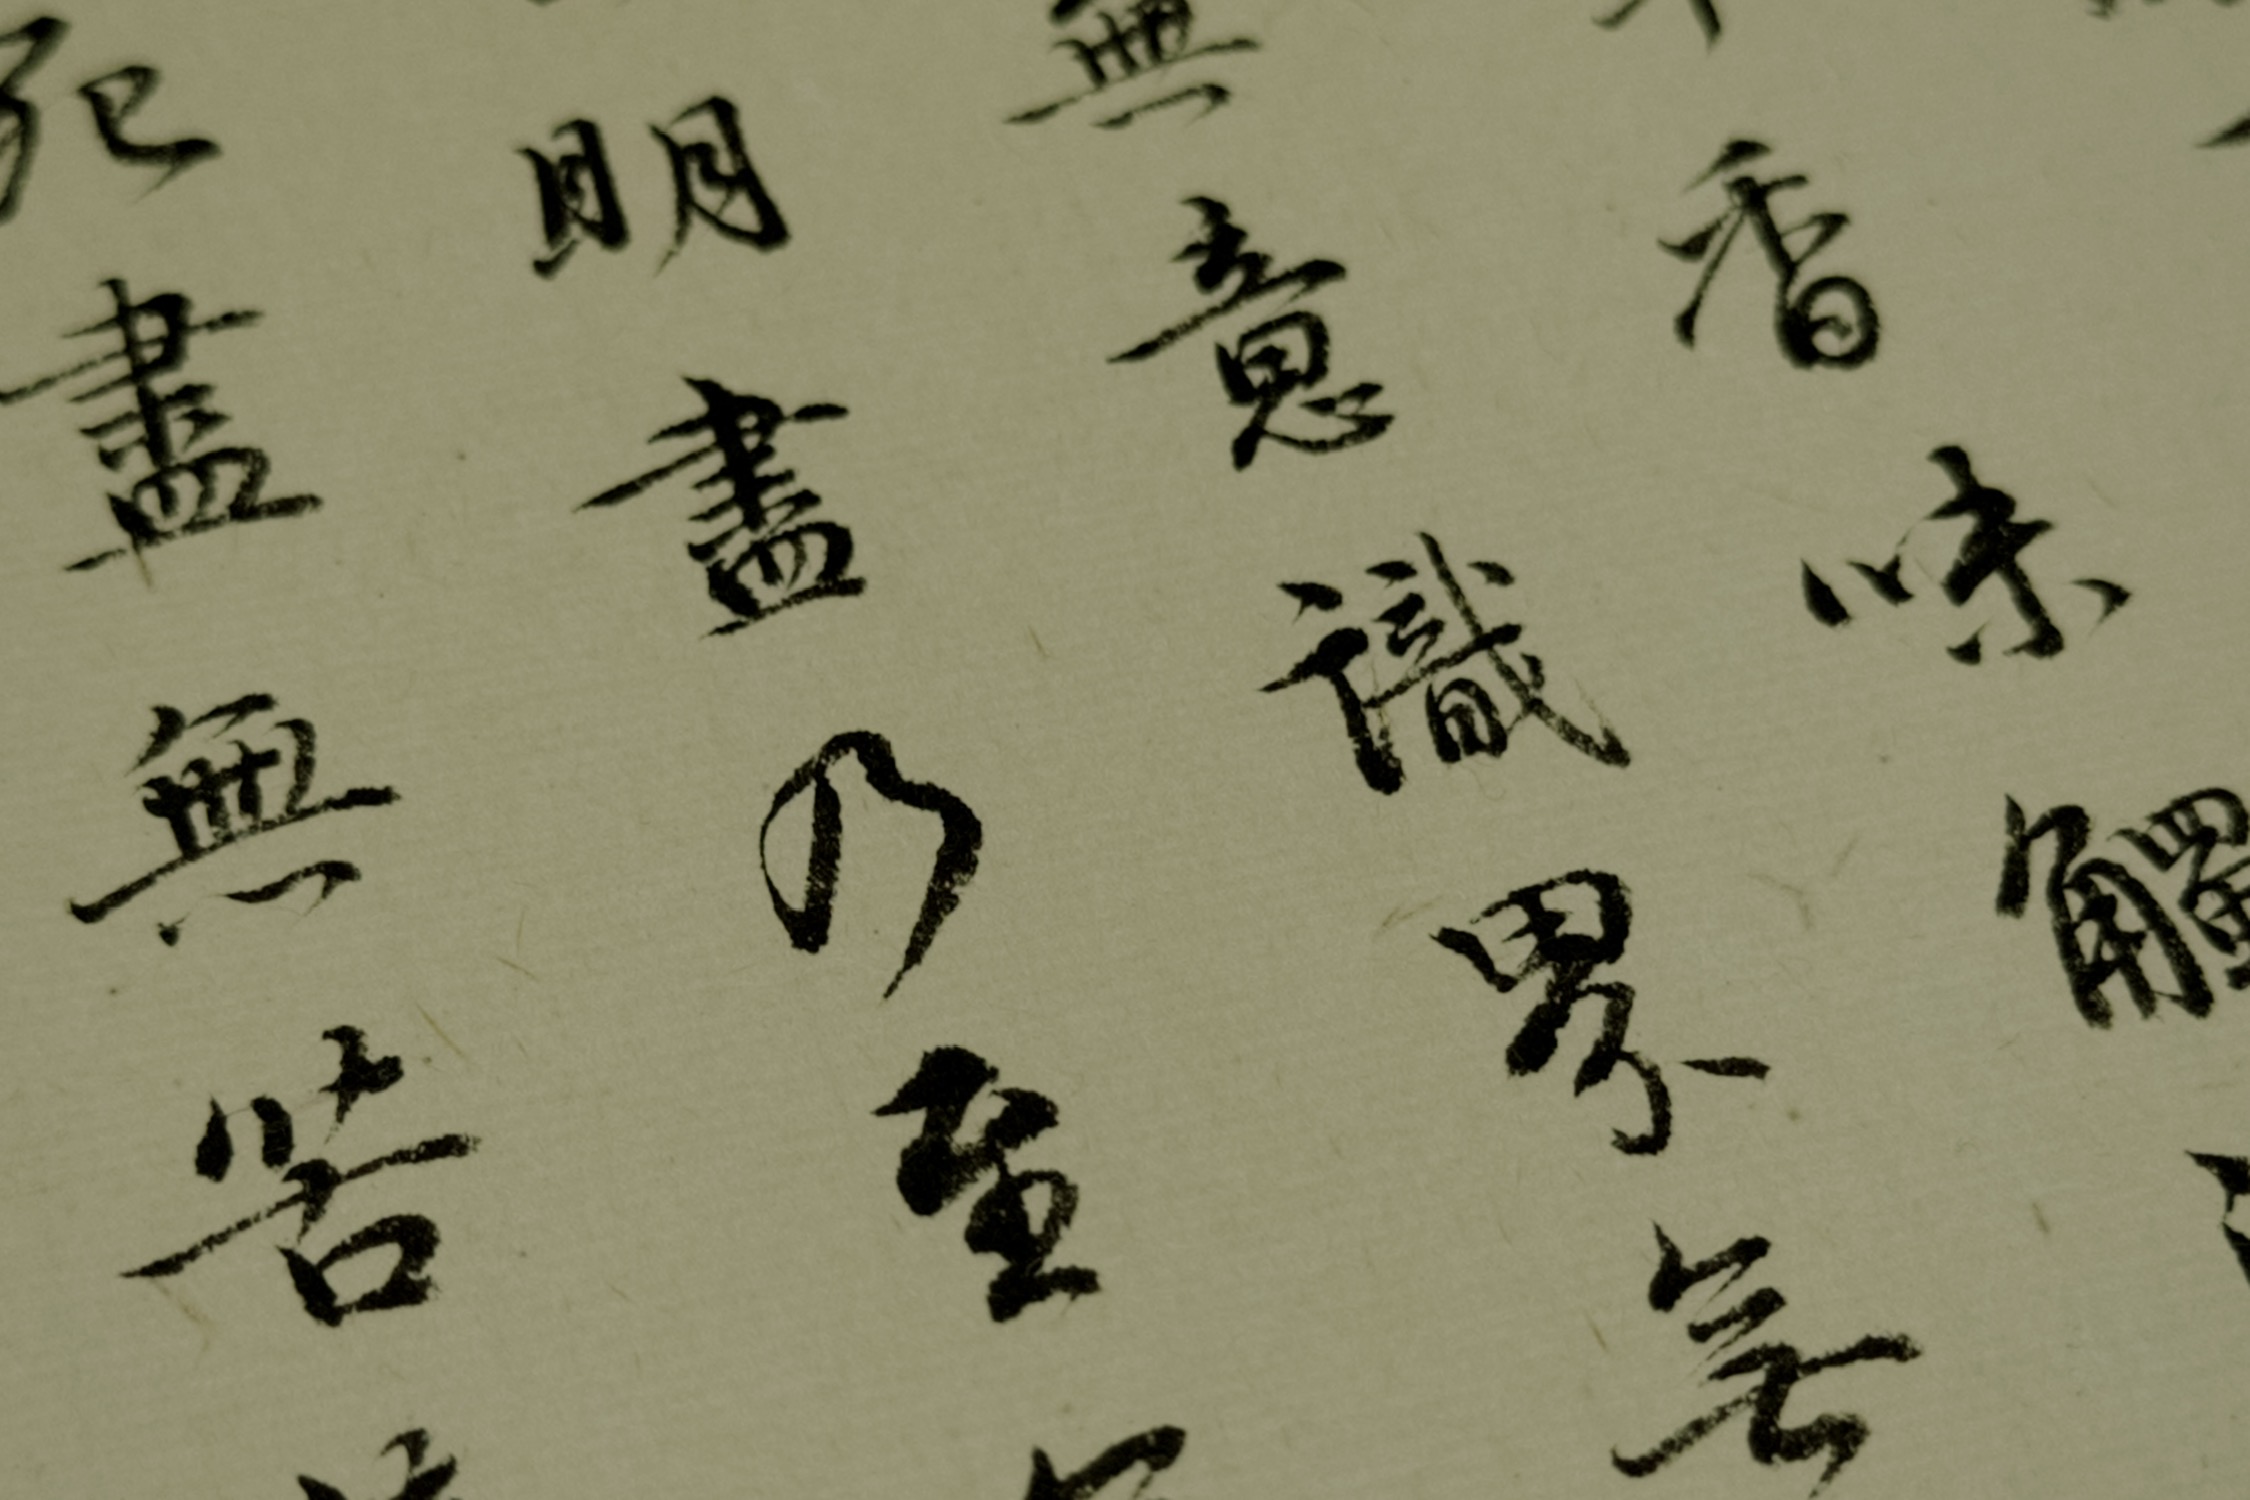 香味觸
無意識界無
明盡乃至
死盡無苦